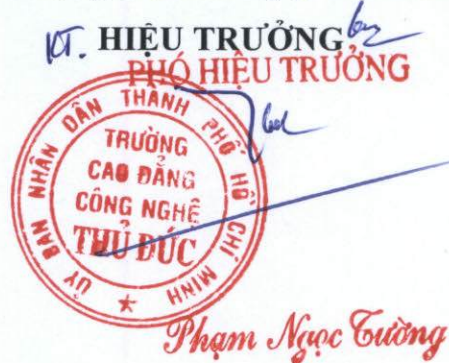 KT. HIỆU TRƯỞNG
PHÓ HIỆU TRƯỞNG
ỦY BAN NHÂN DÂN THÀNH PHỐ HỒ CHÍ MINH
TRƯỜNG
CAO ĐẲNG
CÔNG NGHỆ
THỦ ĐỨC
★
Phạm Ngọc Tường